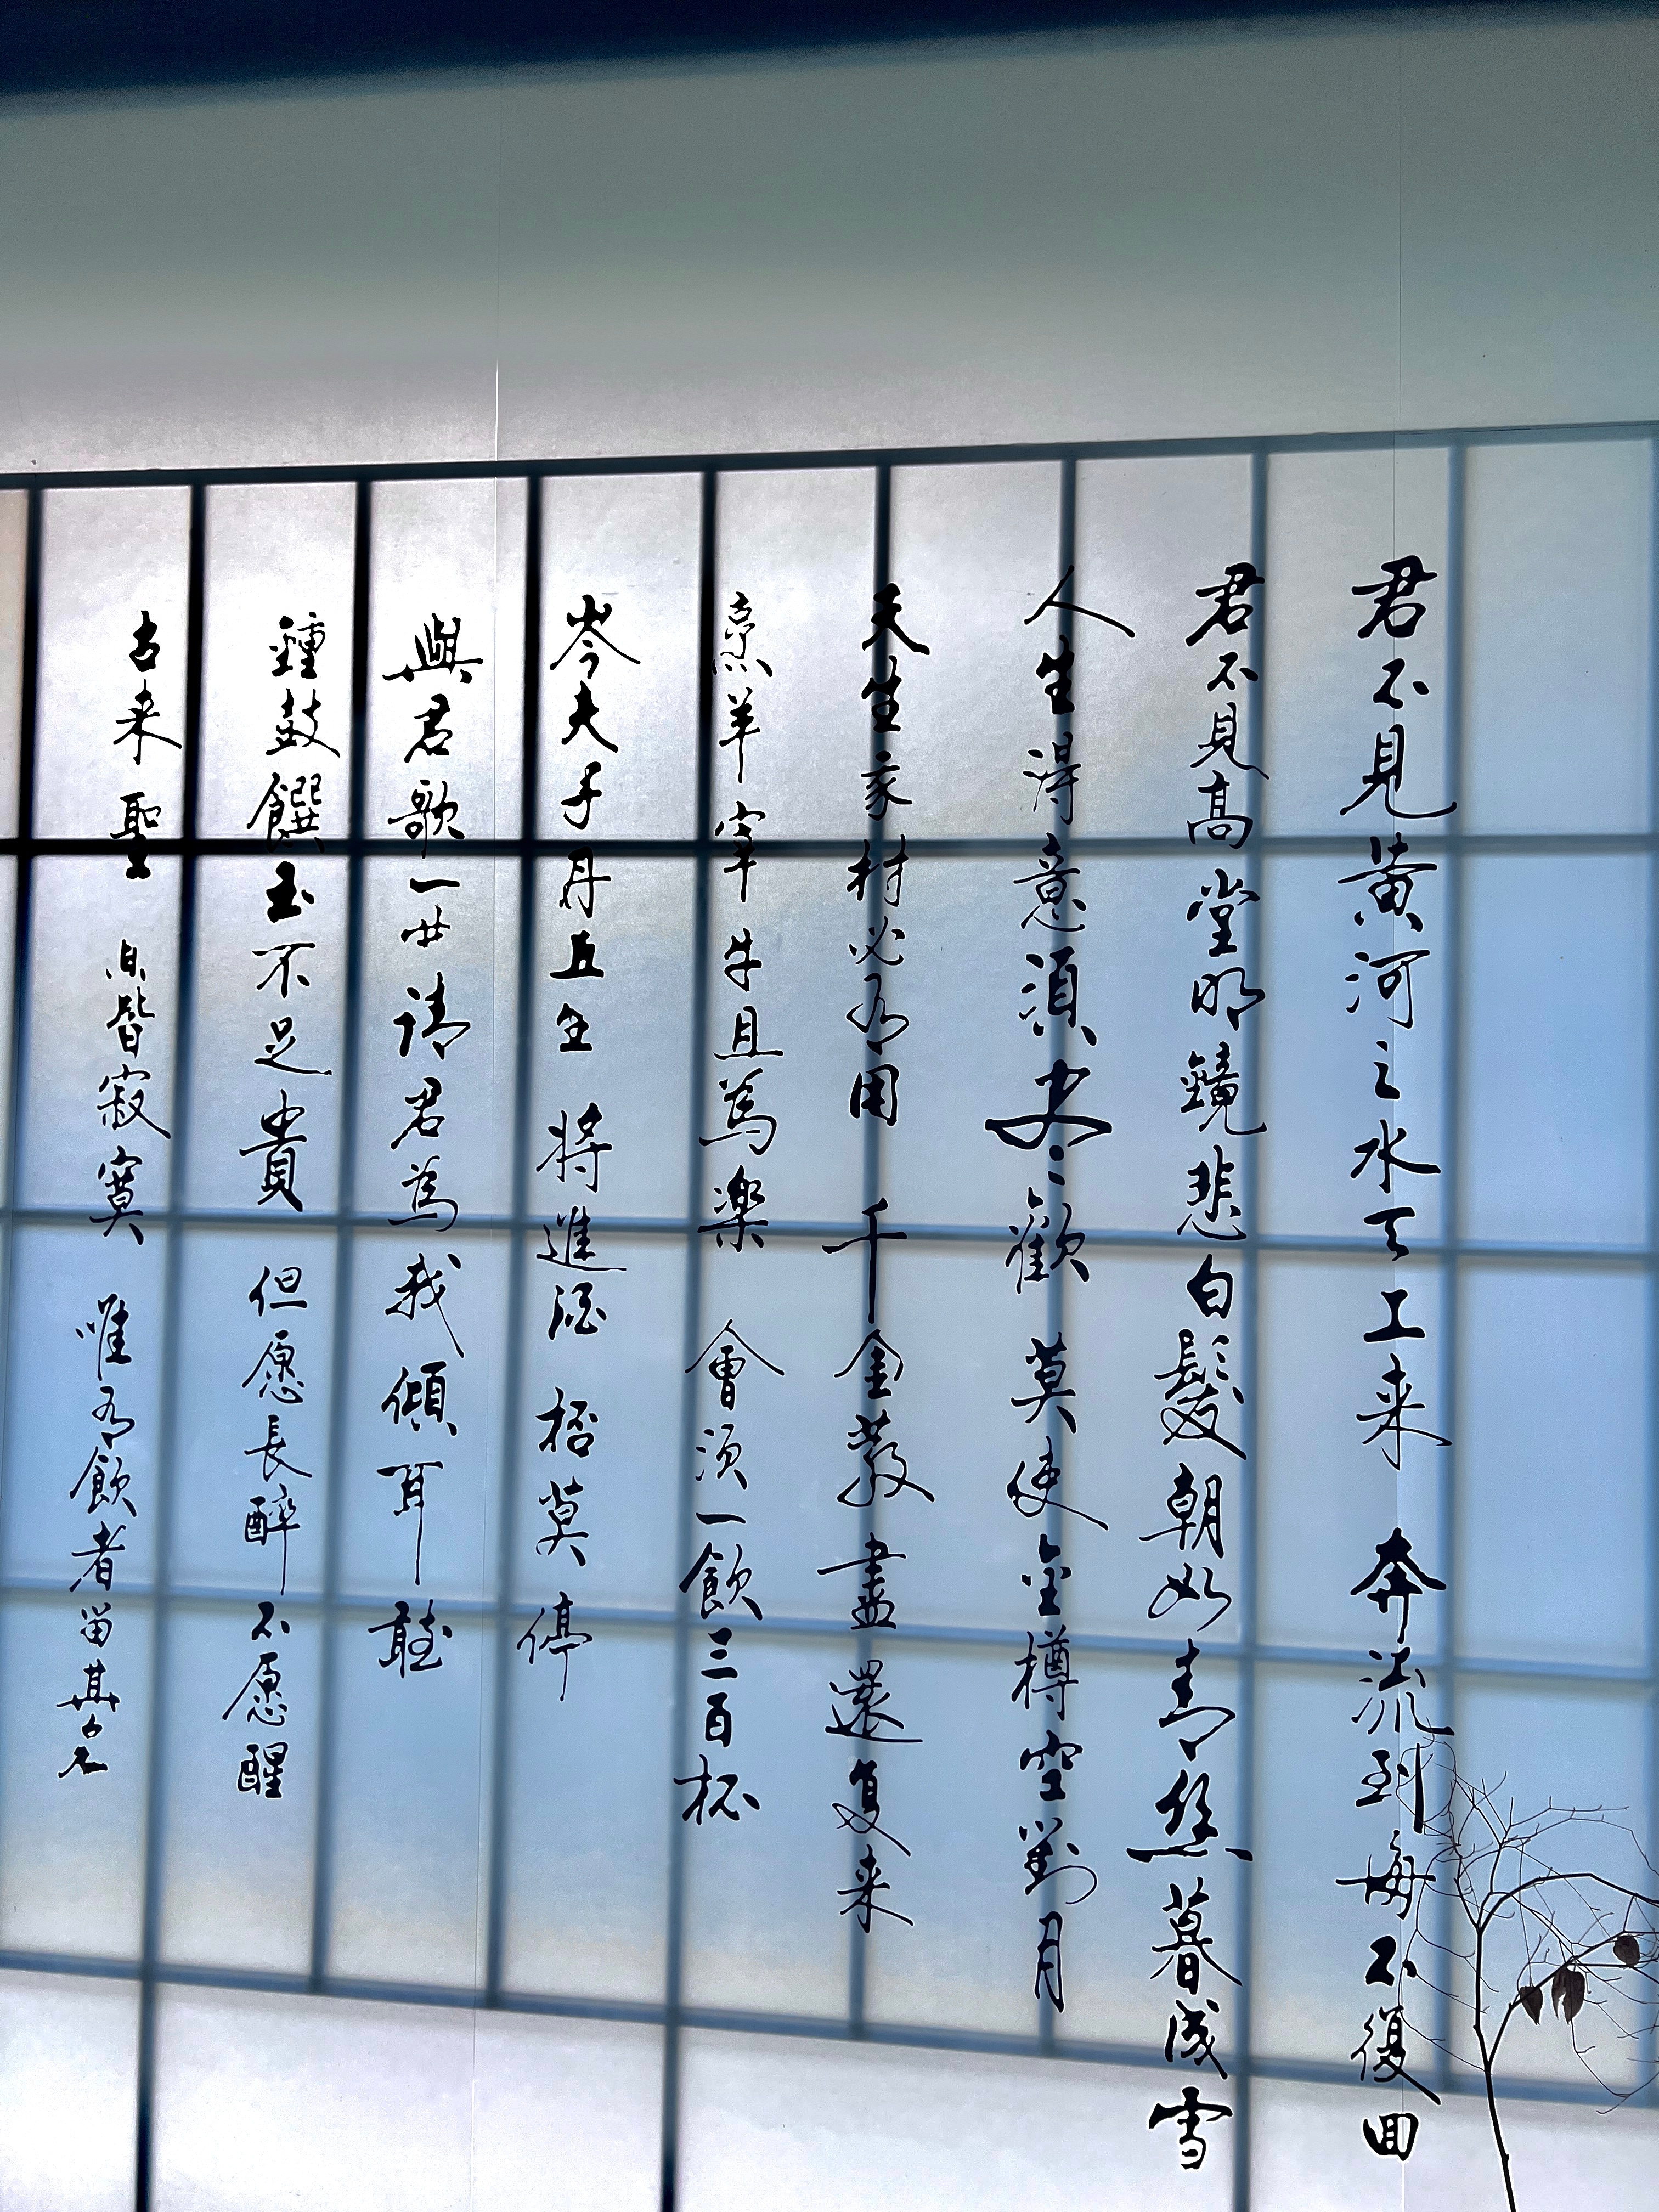 君不見黃河之水天上来 奔流到海不復回
君不見高堂明鏡悲白髮朝如青丝暮成雪
人生得意須尽歡 莫使金樽空對月
天生我材必有用 千金散盡還复来
烹羊宰牛且為楽 會須一飲三百杯
岑夫子丹丘生 將進酒 杯莫停
與君歌一曲請君為我傾耳聽
鍾鼓饌玉不足貴 但愿長醉不愿醒
古来聖賢皆寂寞 唯有飲者留其名